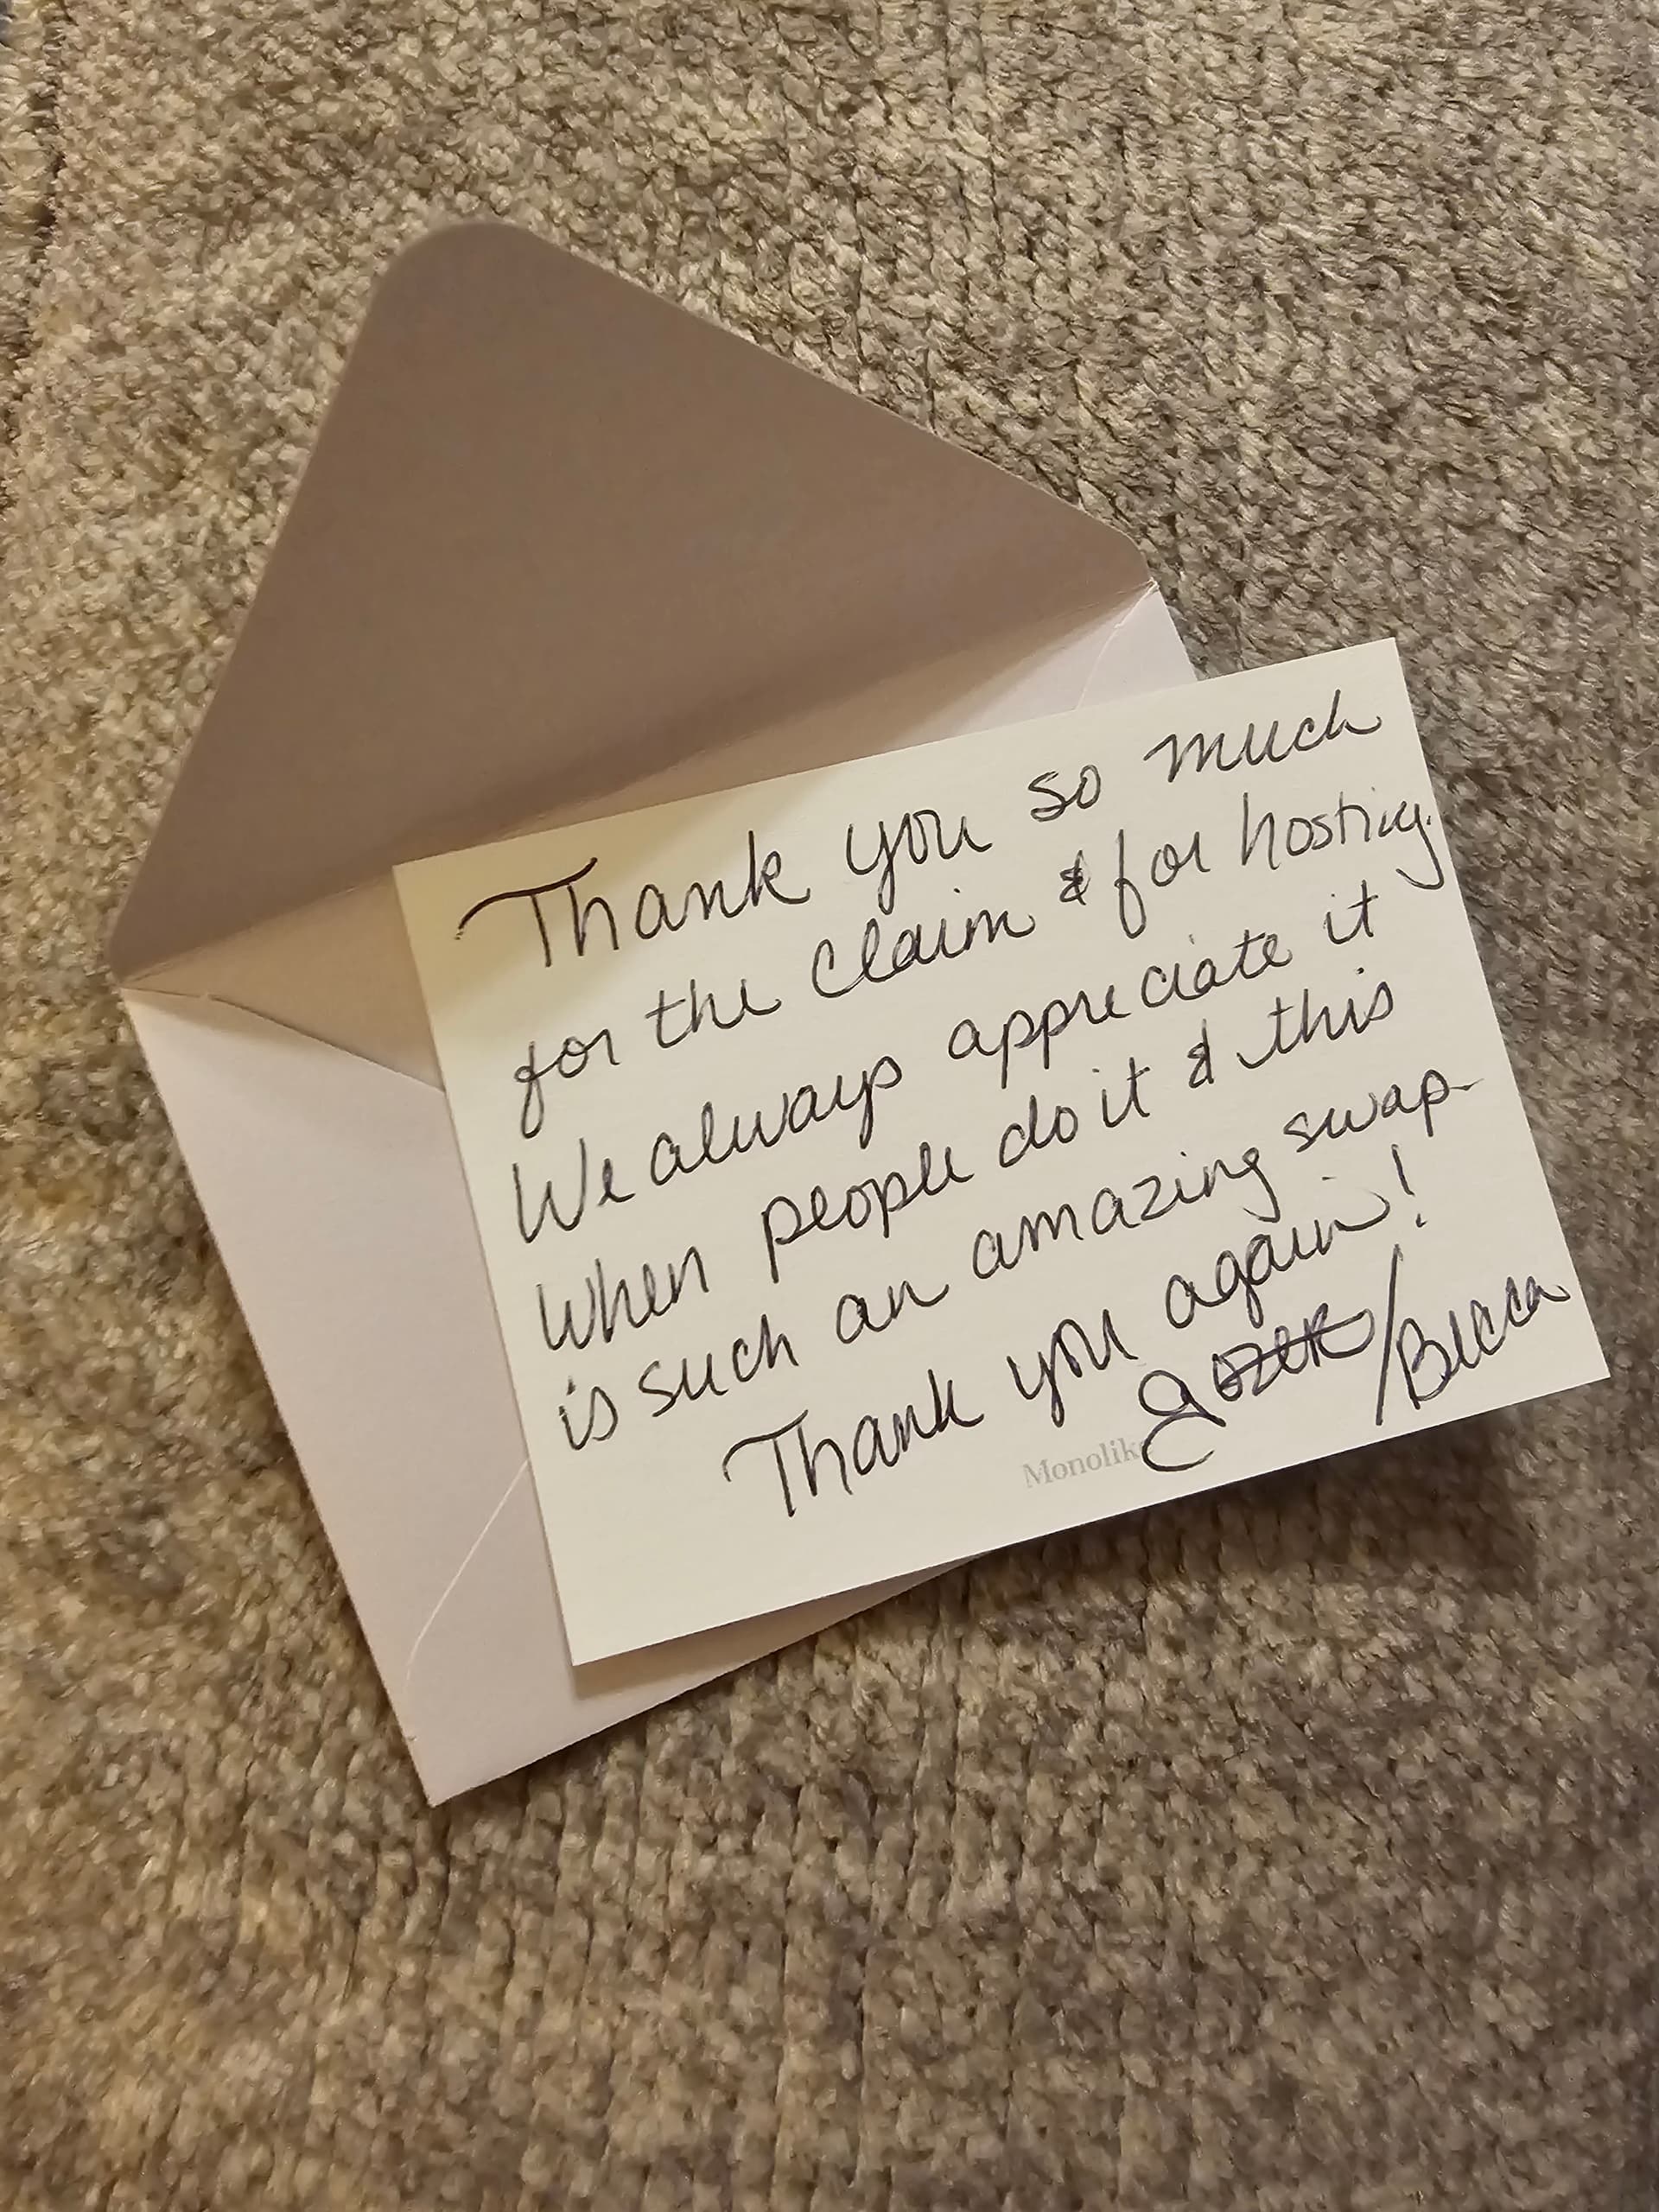 Thank you so much
for the claim & for hosting.
We always appreciate it
when people do it & this
is such an amazing swap.
Thank you again!
/Becca
Monolik